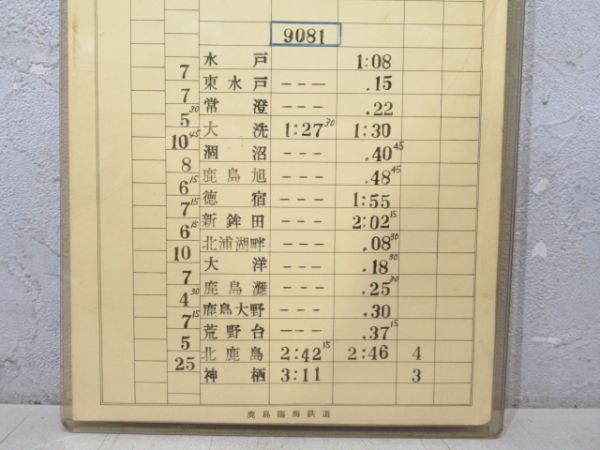 9081
水戸 1:08
7
東水戸 --- .15
7
常澄 --- .22
5 30
大洗 1:27 30 1:30
10 45
涸沼 --- .40 45
8
鹿島旭 --- .48 45
6 15
徳宿 --- 1:55
7 15
新鉾田 --- 2:02 15
6 15
北浦湖畔 --- .08 30
10
大洋 --- .18 30
7
鹿島灘 --- .25 30
4 30
鹿島大野 --- .30
7 15
荒野台 --- .37 15
5
北鹿島 2:42 15 2:46 4
25
神栖 3:11 3
鹿島臨海鉄道